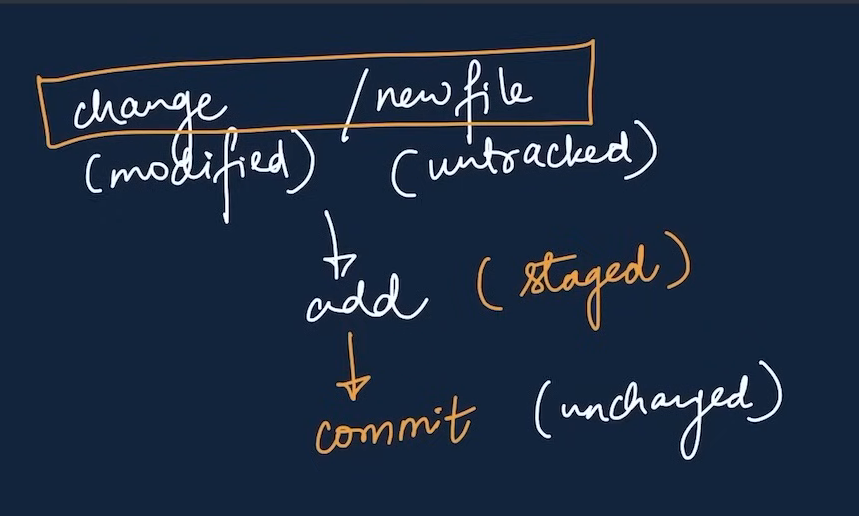 change / new file
(modified) (untracked)
add (staged)
commit (unchanged)